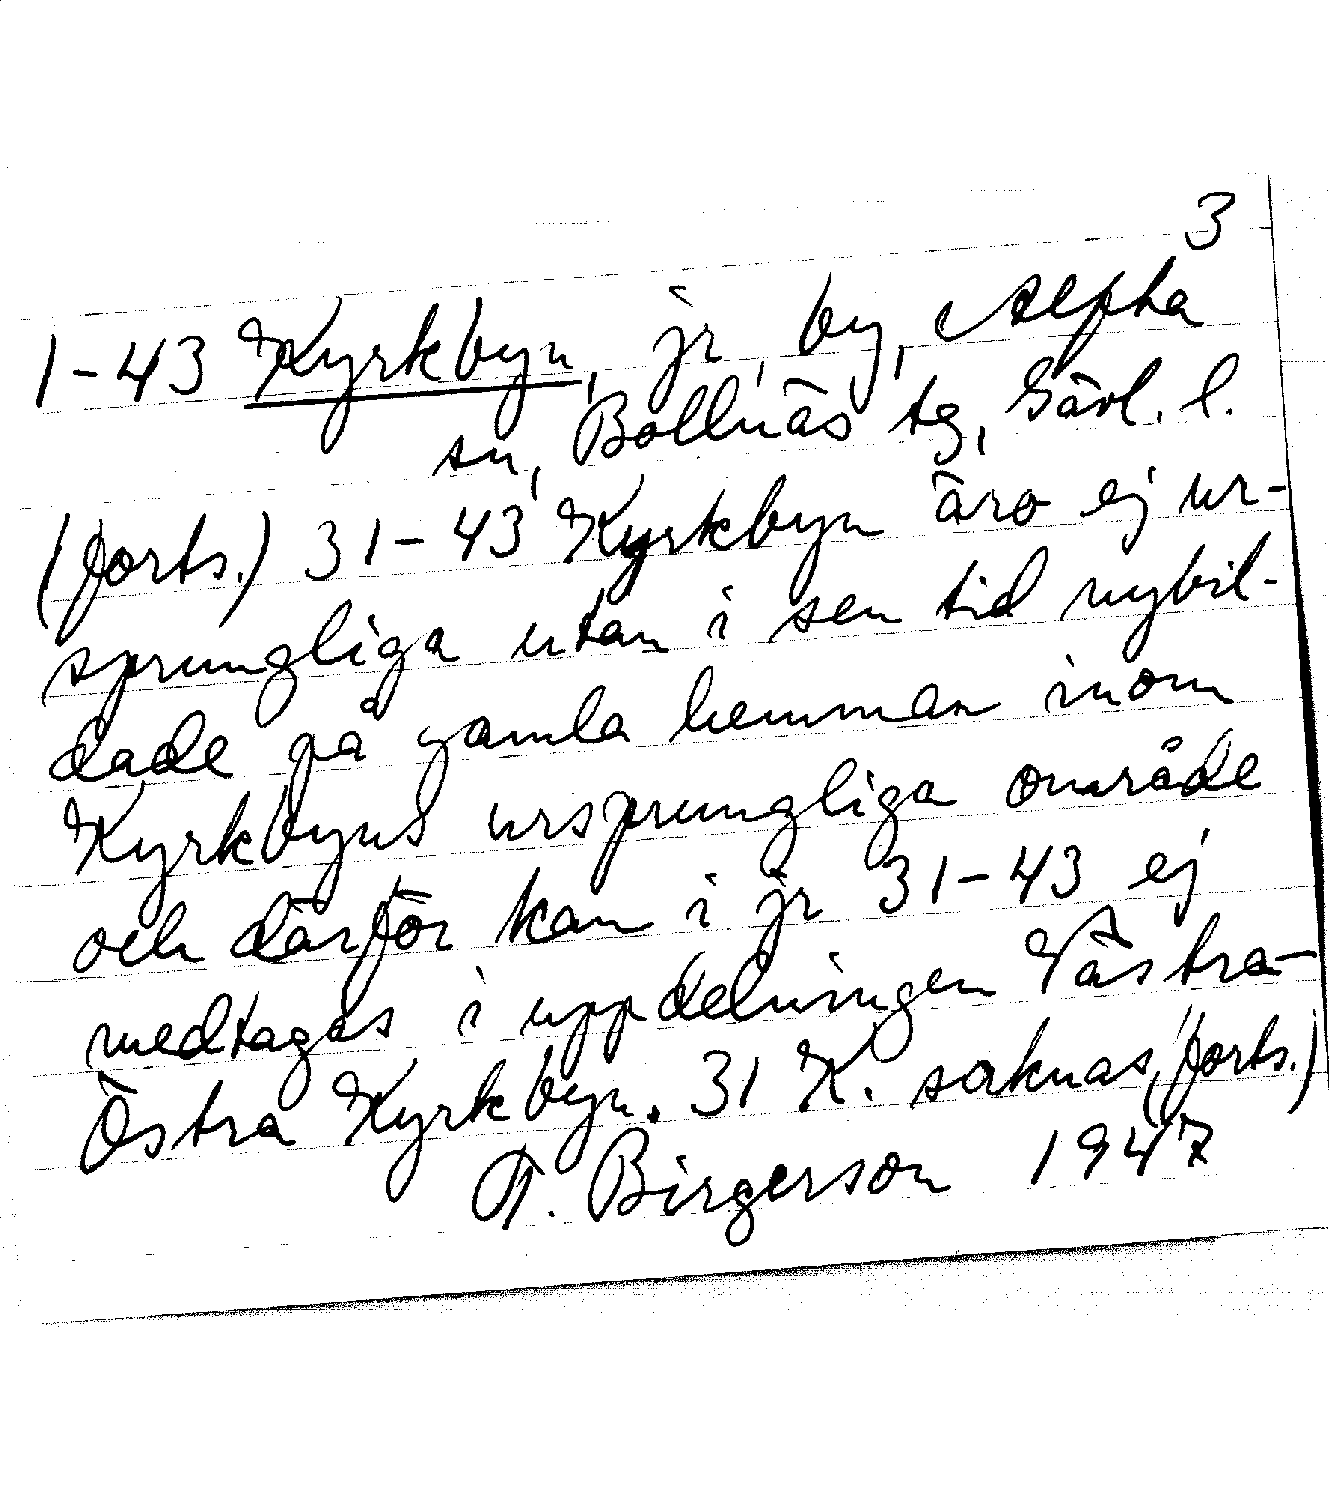 3
1-43 Kyrkbyn, jr, by, Alfta
sn, Bollnäs tg, Gävl. l.
(forts.) 31-43 Kyrkbyn äro ej ur-
sprungliga utan i sen tid nybil-
dade på gamla hemman inom
Kyrkbyns ursprungliga område
och därför kan i jr 31-43 ej
medtagas i uppdelningen Västra-
Östra Kyrkbyn. 31 K. saknas, (forts.)
T. Birgerson 1947